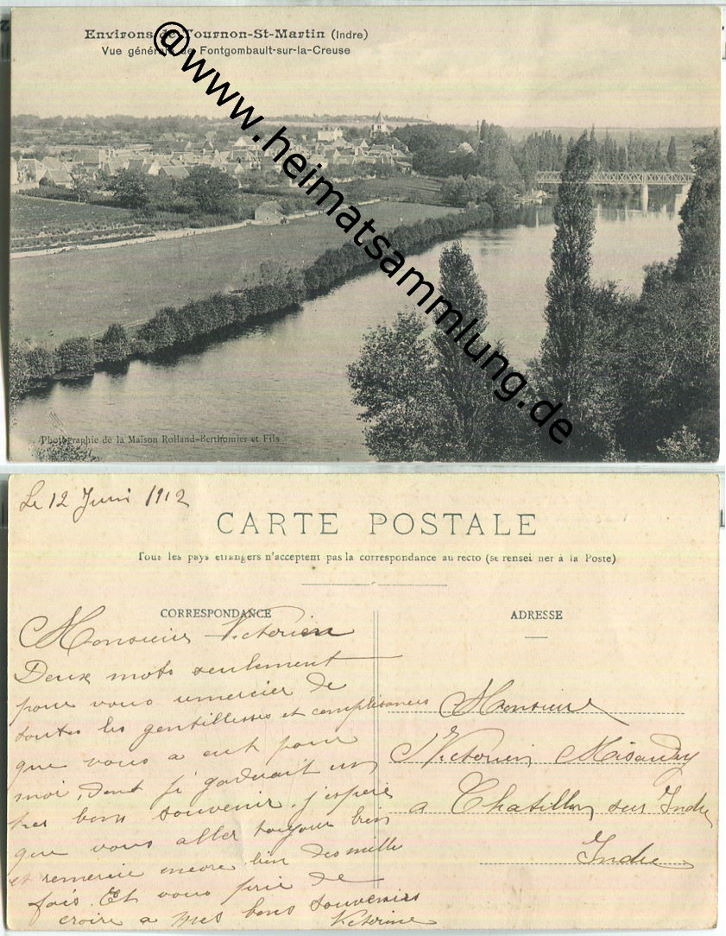 Environs de Tournon-St-Martin (Indre)
Vue générale de Fontgombault-sur-la-Creuse
@www.heimatsammlung.de
Photographie de la Maison Rolland-Berthomier et Fils
Le 12 Juin 1912
CARTE POSTALE
Tous les pays étrangers n'acceptent pas la correspondance au recto (se rensei ner à la Poste)
CORRESPONDANCE
Monsieur Victorien
Deux mots seulement
pour vous remercier de
toutes les gentillesses et complisances
que vous a eut pour
moi, dont je garderait un
tres bons souvenir. j'espère
que vous aller toujour bien
et remercie encore bien des mille
fois. Et vous prie de
croire a mes bons souvenirs
Victorine
ADRESSE
Monsieur
Victorien
a Chatillon sur Indre
Indre